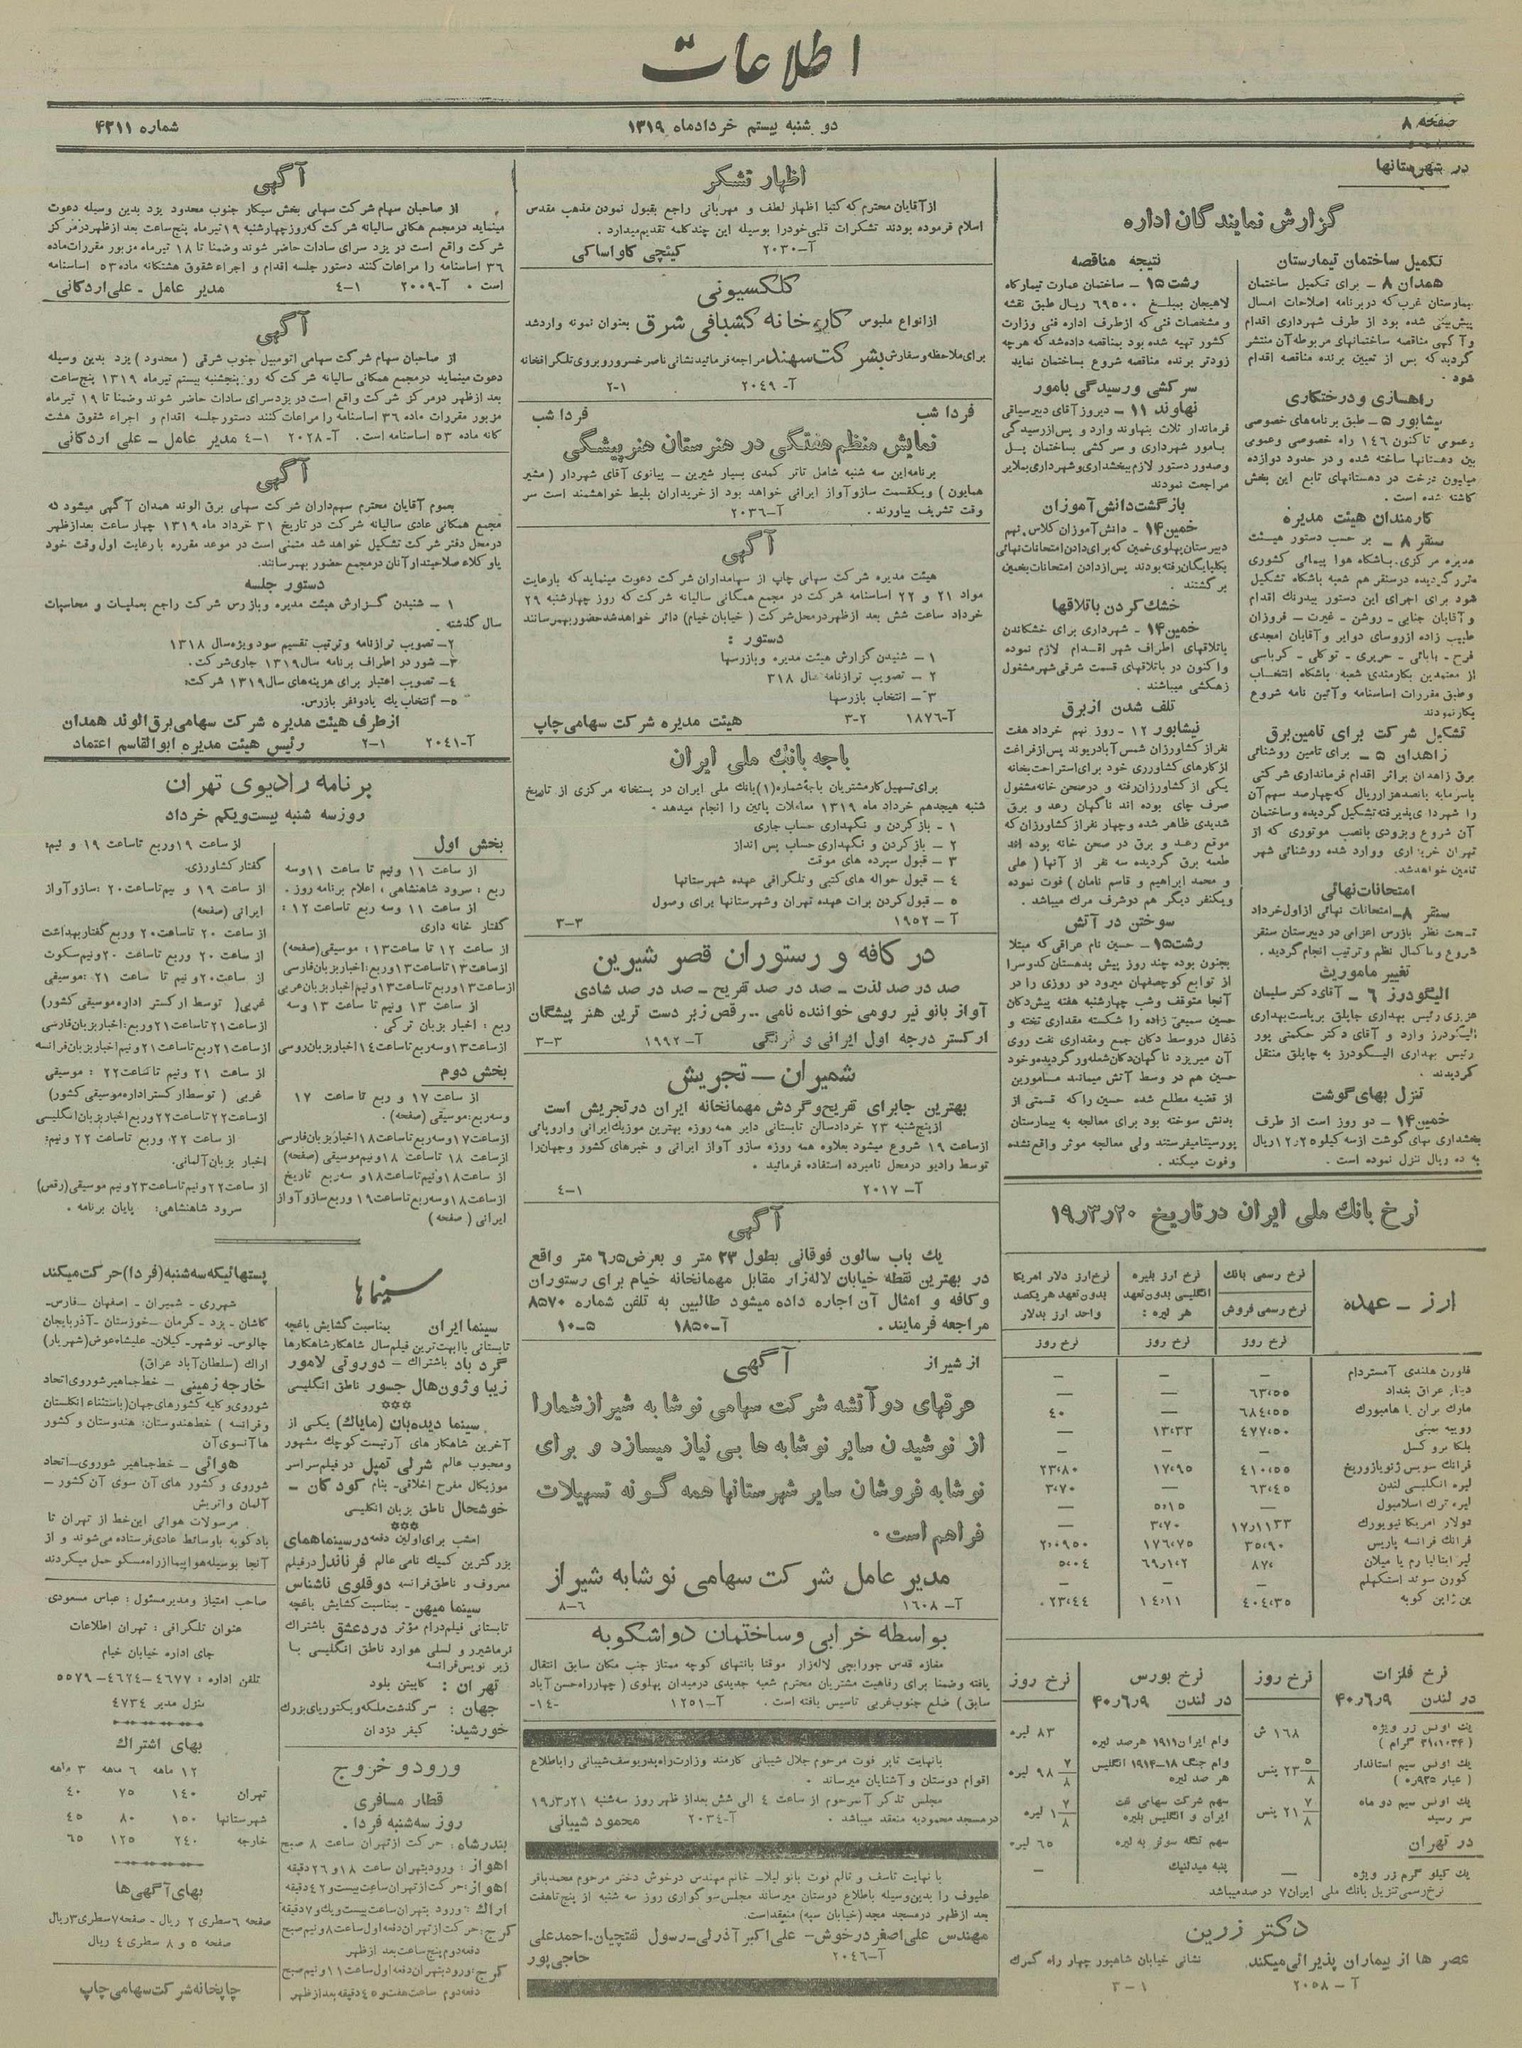 اطلاعات
صفحه ۸
دو شنبه بیستم خردادماه ۱۳۱۹
شماره ۴۳۱۱
در شهرستانها
گزارش نمایندگان اداره
تکمیل ساختمان تیمارستان
همدان ۸ – برای تکمیل ساختمان
بیمارستان غرب که دربرنامه اصلاحات امسال
پیش‌بینی شده بود از طرف شهرداری اقدام
و آگهی مناقصه ساختمانهای مربوطه آن منتشر
گردید که پس از تعیین برنده مناقصه اقدام
شود
راهسازی و درختکاری
نیشابور ۵ – طبق برنامه‌های خصوصی
وعمومی تاکنون ۱۴۶ راه خصوصی وعمومی
بین دهستانها ساخته شده و در حدود دوازده
میلیون درخت در دهستانهای تابع این بخش
کاشته شده است .
کارمندان هیئت مدیره
سنقر ۸ – بر حسب دستور هیئت
مدیره مرکزی باشگاه هوا پیمائی کشوری
مقرر گردیده درسنقر هم شعبه باشگاه تشکیل
شود برای اجرای این دستور بیدرنك اقدام
و آقایان جنابی – روشن – غیرت – فروزان
طبیب زاده ازروسای دوایر و آقایان امجدی
فرح – بابائی – حریری – توکلی – کرباسی
از معتمدین بکارمندی شعبه باشگاه انتخاب
وطبق مقررات اساسنامه و آئین نامه شروع
بکار نمودند
تشکیل شرکت برای تامین برق
زاهدان ۵ – برای تامین روشنائی
برق زاهدان براثر اقدام فرمانداری شرکتی
باسرمایه پانصدهزار ریال که چهارصد سهم آن
را شهرداری پذیرفته تشکیل گردیده و ساختمان
آن شروع وبزودی بانصب موتوری که از
تهران خریداری و وارد شده روشنائی شهر
تامین خواهدشد.
امتحانات نهائی
سنقر ۸ – امتحانات نهائی ازاول خرداد
تحت نظر بازرس اعزامی در دبیرستان سنقر
شروع و باکمال نظم و ترتیب انجام گردید.
تغییر ماموریت
الیگودرز ۶ – آقای دکتر سلیمان
عزیزی رئیس بهداری جاپلق بریاست بهداری
الیگودرز وارد و آقای دکتر حکمتی پور
رئیس بهداری الیگودرز به جاپلق منتقل
گردیدند.
تنزل بهای گوشت
خمین ۱۴ – دو روز است از طرف
بخشداری بهای گوشت ازسه کیلو ۱۲٫۲۵ ریال
به ده ریال تنزل نموده است .
نتیجه مناقصه
رشت ۱۵ – ساختمان عمارت تیمارگاه
لاهیجان بمبلغ ۶۹۵۰۰ ریال طبق نقشه
و مشخصات فنی که ازطرف اداره فنی وزارت
کشور تهیه شده بود بمناقصه داده شد که هرچه
زودتر برنده مناقصه شروع بساختمان نماید
سرکشی ورسیدگی بامور
نهاوند ۱۱ – دیروز آقای دبیرسیاقی
فرماندار ثلاث بنهاوند وارد و پس از رسیدگی
بامور شهرداری و سرکشی بساختمان پل
وصدور دستور لازم ببخشداری وشهرداری بملایر
مراجعت نمودند
بازگشت دانش آموزان
خمین ۱۴ – دانش آموزان کلاس نهم
دبیرستان پهلوی خمین که برای دادن امتحانات نهائی
بگلپایگان رفته بودند پس ازدادن امتحانات بخمین
برگشتند .
خشك كردن باتلاقها
خمین ۱۴ – شهرداری برای خشکاندن
باتلاقهای اطراف شهر اقدام لازم نموده
واکنون در باتلاقهای قسمت شرقی شهر مشغول
زهکشی میباشند .
تلف شدن ازبرق
نیشابور ۱۲ – روز نهم خرداد هفت
نفراز کشاورزان شمس آباد دربوند پس ازفراغت
از کارهای کشاورزی خود برای استراحت بخانه
یکی از کشاورزان رفته و درصحن خانه مشغول
صرف چای بوده اند ناگهان رعد و برق
شدیدی ظاهر شده وچهار نفراز کشاورزان که
موقع رعد و برق در صحن خانه بوده اند
طعمه برق گردیده سه نفر از آنها ( علی
و محمد ابراهیم و قاسم نامان ) فوت نموده
ویکنفر دیگر هم درشرف مرك میباشد .
سوختن در آتش
رشت ۱۵ – حسین نام عراقی که مبتلا
بجنون بوده چند روز پیش بدهستان کدوسرا
از توابع کوچصفهان میرود دو روزی را در
آنجا متوقف وشب چهارشنبه هفته پیش دکان
حسین سمیعی زاده را شکسته مقداری تخته و
ذغال دروسط دکان جمع و مقداری نفت روی
آن میریزد ناگهان دکان شعله‌ور گردیده وخود
حسین هم در وسط آتش میماند مامورین
از قضیه مطلع شده حسین را که قسمتی از
بدنش سوخته بود برای معالجه به بیمارستان
پورسینامیفرستند ولی معالجه موثر واقع نشده
وفوت میکند .
نرخ بانك ملی ایران در تاریخ ۱۹٫۳٫۲۰
ارز – عهده
نرخ رسمی بانك
نرخ رسمی فروش
نرخ روز
نرخ ارز بلیره انگلیسی بدون تعهد هر لیره :
نرخ روز
نرخ ارز دلار امریکا بدون تعهد هریکصد واحد ارز بدلار
نرخ روز
فلورن هلندی آمستردام – – –
دینار عراق بغداد ۶۳٫۵۵ – –
مارك بران یا هامبورك ۶۸۴٫۵۵ – ۴۰
روپیه بمبئی ۴۷۷٫۵۰ ۱۳٫۳۳ –
بلگا بروکسل – – –
فرانك سویس ژنو یازوریخ ۴۱۰٫۵۵ ۱۷٫۹۵ ۲۳٫۸۰
لیره انگلیسی لندن ۶۳٫۴۵ – ۳٫۷۰
لیره ترك اسلامبول – ۵٫۱۵ –
دولار امریکا نیویورك ۱۷٫۱۱۳۳ ۳٫۷۰ –
فرانك فرانسه پاریس ۳۵٫۹۰ ۱۷۶٫۷۵ ۲٫۰۹۵۰
لیر ایتالیا رم یا میلان ۸۷٫ ۶۹٫۱۰۲ ۵٫۰۴
کورن سوئد استکهلم – – –
ین ژاپن کوبه ۴۰۴٫۳۵ ۱۴٫۱۱ ۲۳٫۴۴
نرخ فلزات در لندن ۴۰٫۶٫۹
نرخ روز
نرخ بورس در لندن ۴۰٫۶٫۹
نرخ روز
یك اونس زر ویژه ( ۳۱٫۱۰۳۴ گرام ) ۱۶۸ ش
وام ایران ۱۹۱۱ هرصد لیره ۸۳ لیره
یك اونس سیم استاندار ( عیار ۰٫۹۲۵ ) ۲۳ ۵/۸ پنس
وام جنگ ۱۸–۱۹۱۴ انگلیس هر صد لیره ۹۸ ۷/۸ لیره
یك اونس سیم دو ماه سر رسید ۲۱ ۷/۸ پنس
سهم شرکت سهامی نفت ایران و انگلیس بلیره ۱ ۷/۸ لیره
در تهران
سهم تنگه سوئز به لیره ۶۵ لیره
یك كیلو گرم زر ویژه –
پنبه میدلنیك –
نرخ رسمی تنزیل بانك ملی ایران ۷ در صد میباشد
دکتر زرین
عصر ها از بیماران پذیرائی میکند. نشانی خیابان شاهپور چهار راه گمرك
آ – ۲۰۵۸ ۱–۳
اظهار تشکر
ازآقایان محترم که کتبا اظهار لطف و مهربانی راجع بقبول نمودن مذهب مقدس
اسلام فرموده بودند تشکرات قلبی خودرا بوسیله این چند کلمه تقدیم میدارد .
آ–۲۰۳۰ کینچی کاواساکی
کلکسیونی
ازانواع ملبوس کارخانه کشبافی شرق بعنوان نمونه واردشد
برای ملاحظه وسفارش بشرکت سهند مراجعه فرمائید نشانی ناصر خسرو روبروی تلگرافخانه
آ– ۲۰۴۹ ۱–۲
فردا شب فردا شب
نمایش منظم هفتگی در هنرستان هنرپیشگی
برنامه این سه شنبه شامل تاتر کمدی بسیار شیرین – پیانوی آقای شهردار ( مشیر
همایون ) ویکقسمت سازوآواز ایرانی خواهد بود از خریداران بلیط خواهشمند است سر
وقت تشریف بیاورند . آ–۲۰۳۶
آگهی
هیئت مدیره شرکت سهامی چاپ از سهامداران شرکت دعوت مینماید که بارعایت
مواد ۲۱ و ۲۲ اساسنامه شرکت در مجمع همگانی سالیانه شرکت که روز چهارشنبه ۲۹
خرداد ساعت شش بعد ازظهر درمحل شرکت ( خیابان خیام ) دائر خواهدشد حضور بهمرسانند
دستور :
۱ – شنیدن گزارش هیئت مدیره و بازرسها
۲ – تصویب ترازنامه سال ۳۱۸
۳ – انتخاب بازرسها
آ–۱۸۷۶ ۲–۳ هیئت مدیره شرکت سهامی چاپ
باجه بانك ملی ایران
برای تسهیل کار مشتریان باجه شماره (۱) بانك ملی ایران در پستخانه مرکزی از تاریخ
شنبه هیجدهم خرداد ماه ۱۳۱۹ معاملات پائین را انجام میدهد .
۱ – باز کردن و نگهداری حساب جاری
۲ – باز کردن و نگهداری حساب پس انداز
۳ – قبول سپرده های موقت
۴ – قبول حواله های کتبی و تلگرافی عهده شهرستانها
۵ – قبول کردن برات عهده تهران وشهرستانها برای وصول
آ – ۱۹۵۲ ۳–۳
در کافه و رستوران قصر شیرین
صد در صد لذت – صد در صد تفریح – صد در صد شادی
آواز بانو نیر رومی خواننده نامی .. رقص زبر دست ترین هنرپیشگان
ارکستر درجه اول ایرانی و فرنگی آ–۱۹۹۲ ۳–۳
شمیران – تجریش
بهترین جا برای تفریح و گردش مهمانخانه ایران در تجریش است
ازپنج شنبه ۲۳ خرداد سالن تابستانی دایر همه روزه بهترین موزیك ایرانی واروپائی
ازساعت ۱۹ شروع میشود بعلاوه همه روزه سازو آواز ایرانی و خبرهای کشور وجهان را
توسط رادیو درمحل نامبرده استفاده فرمائید .
آ– ۲۰۱۷ ۱–۴
آگهی
یك باب سالون فوقانی بطول ۲۳ متر و بعرض ۶٫۵ متر واقع
در بهترین نقطه خیابان لاله‌زار مقابل مهمانخانه خیام برای رستوران
و کافه و امثال آن اجاره داده میشود طالبین به تلفن شماره ۸۵۷۰
مراجعه فرمایند . آ–۱۸۵۰ ۵–۱۰
از شیراز آگهی
عرقهای دو آتشه شرکت سهامی نوشابه شیراز شمارا
از نوشیدن سایر نوشابه ها بی نیاز میسازد و برای
نوشابه فروشان سایر شهرستانها همه گونه تسهیلات
فراهم است .
مدیر عامل شرکت سهامی نوشابه شیراز
آ– ۱۶۰۸ ۶–۸
بواسطه خرابی وساختمان دواشکوبه
مغازه قدس جورابچی لاله‌زار موقتا بانتهای کوچه ممتاز جنب مکان سابق انتقال
یافته وضمنا برای رفاهیت مشتریان محترم شعبه جدیدی درمیدان پهلوی ( چهارراه حسن آباد
سابق ) ضلع جنوب غربی تاسیس یافته است . آ–۱۲۵۱ –۱۴
بانهایت تاثر فوت مرحوم جلال شیبانی کارمند وزارت راه پدر یوسف شیبانی را باطلاع
اقوام دوستان و آشنایان میرساند .
مجلس تذکر آنمرحوم از ساعت ۴ الی شش بعداز ظهر روز سه‌شنبه ۱۹٫۳٫۲۱
درمسجد محمودیه منعقد میباشد . آ–۲۰۳۴ محمود شیبانی
با نهایت تاسف و تالم فوت بانو لیلا – خانم مهندس درخوش دختر مرحوم محمدباقر
علیوف را بدین‌وسیله باطلاع دوستان میرساند مجلس سوگواری روز سه شنبه از پنج تا هفت
بعد ازظهر درمسجد مجد (خیابان سپه) منعقد است.
مهندس علی‌اصغر درخوش – علی‌اکبر آذرلی – رسول نفتچیان – احمدعلی
حاجی پور آ–۲۰۴۶
آگهی
از صاحبان سهام شرکت سهامی بخش سیگار جنوب محدود یزد بدین وسیله دعوت
مینماید درمجمع همگانی سالیانه شرکت که روز چهارشنبه ۱۹ تیرماه پنج ساعت بعد ازظهر در مرکز
شرکت واقع است در یزد سرای سادات حاضر شوند وضمنا تا ۱۸ تیرماه مزبور مقررات ماده
۳۶ اساسنامه را مراعات کنند دستور جلسه اقدام و اجراء شقوق هشتگانه ماده ۵۳ اساسنامه
است . آ–۲۰۰۹ ۱–۴ مدیر عامل – علی اردکانی
آگهی
از صاحبان سهام شرکت سهامی اتومبیل جنوب شرقی ( محدود ) یزد بدین وسیله
دعوت مینماید درمجمع همگانی سالیانه شرکت که روز پنجشنبه بیستم تیرماه ۱۳۱۹ پنج ساعت
بعد ازظهر درمرکز شرکت واقع است در یزد سرای سادات حاضر شوند وضمنا تا ۱۹ تیرماه
مزبور مقررات ماده ۳۶ اساسنامه را مراعات کنند دستور جلسه اقدام و اجراء شقوق هشت
گانه ماده ۵۳ اساسنامه است. آ–۲۰۲۸ ۱–۴ مدیر عامل – علی اردکانی
آگهی
بعموم آقایان محترم سهم‌داران شرکت سهامی برق الوند همدان آگهی میشود که
مجمع همگانی عادی سالیانه شرکت در تاریخ ۳۱ خرداد ماه ۱۳۱۹ چهار ساعت بعدازظهر
درمحل دفتر شرکت تشکیل خواهد شد متمنی است در موعد مقرره با رعایت اول وقت خود
یا وکلاء صلاحیتدار آنان درمجمع حضور بهمرسانند.
دستور جلسه
۱ – شنیدن گزارش هیئت مدیره و بازرس شرکت راجع بعملیات و محاسبات
سال گذشته .
۲– تصویب ترازنامه و ترتیب تقسیم سود ویژه سال ۱۳۱۸
۳– شور در اطراف برنامه سال ۱۳۱۹ جاری شرکت .
۴– تصویب اعتبار برای هزینه‌های سال ۱۳۱۹ شرکت:
۵– انتخاب یك یا دو نفر بازرس.
از طرف هیئت مدیره شرکت سهامی برق الوند همدان
آ–۲۰۴۱ ۱–۲ رئیس هیئت مدیره ابوالقاسم اعتماد
برنامه رادیوی تهران
روز سه شنبه بیست ویکم خرداد
بخش اول
از ساعت ۱۱ ونیم تا ساعت ۱۱ وسه
ربع : سرود شاهنشاهی ، اعلام برنامه روز .
از ساعت ۱۱ وسه ربع تا ساعت ۱۲ :
گفتار خانه داری
از ساعت ۱۲ تا ساعت ۱۳: موسیقی (صفحه)
ازساعت ۱۳ تاساعت ۱۳ وربع: اخبار بزبان فارسی
ازساعت ۱۳ وربع تاساعت ۱۳ ونیم اخبار بزبان عربی
از ساعت ۱۳ ونیم تا ساعت ۱۳ وسه
ربع : اخبار بزبان ترکی .
ازساعت ۱۳ وسه ربع تا ساعت ۱۴ اخبار بزبان روسی
بخش دوم
از ساعت ۱۷ و ربع تا ساعت ۱۷
وسه ربع: موسیقی (صفحه) .
ازساعت ۱۷ وسه ربع تاساعت ۱۸ اخبار بزبان فارسی
ازساعت ۱۸ تا ساعت ۱۸ ونیم موسیقی (صفحه)
از ساعت ۱۸ ونیم تا ساعت ۱۸ و سه ربع تاریخ
از ساعت ۱۸ وسه ربع تا ساعت ۱۹ وربع سازوآواز
ایرانی ( صفحه )
از ساعت ۱۹ وربع تا ساعت ۱۹ و نیم:
گفتار کشاورزی.
از ساعت ۱۹ و نیم تا ساعت ۲۰ : سازو آواز
ایرانی (صفحه)
از ساعت ۲۰ تا ساعت ۲۰ وربع گفتار بهداشت
از ساعت ۲۰ وربع تا ساعت ۲۰ ونیم سکوت
از ساعت ۲۰ ونیم تا ساعت ۲۱ : موسیقی
غربی ( توسط ارکستر اداره موسیقی کشور)
ازساعت ۲۱ تاساعت ۲۱ وربع: اخبار بزبان فارسی
ازساعت ۲۱ وربع تاساعت ۲۱ ونیم اخبار بزبان فرانسه
از ساعت ۲۱ ونیم تا ساعت ۲۲ : موسیقی
غربی ( توسط ارکستر اداره موسیقی کشور)
ازساعت ۲۲ تاساعت ۲۲ وربع اخبار بزبان انگلیسی
از ساعت ۲۲ وربع تا ساعت ۲۲ ونیم:
اخبار بزبان آلمانی.
ازساعت ۲۲ ونیم تاساعت ۲۳ ونیم موسیقی (رقص)
سرود شاهنشاهی: پایان برنامه .
سینماها
سینما ایران بمناسبت گشایش باغچه
تابستانی باابهت ترین فیلم سال شاهکار شاهکارها
گرد باد باشتراك – دوروتی لامور
زیبا وژون هال جسور ناطق انگلیسی
***
سینما دیده‌بان (مایاك) یکی از
آخرین شاهکار های آرتیست کوچك مشهور
ومحبوب عالم شرلی تمپل در فیلم سراسر
موزیکال مفرح اخلاقی – بنام کودکان –
خوشحال ناطق بزبان انگلیسی
***
امشب برای اولین دفعه در سینماهای
بزرگترین کمیك نامی عالم فرناندل درفیلم
معروف و ناطق فرانسه دوقلوی ناشناس
سینما میهن – بمناسبت گشایش باغچه
تابستانی فیلم درام مؤثر درد عشق باشتراك
نرماشیرر و لسلی هوارد ناطق انگلیسی با
زیر نویس فرانسه
تهران : کاپیتن بلود
جهان : سرگذشت ملکه ویکتوریای بزرك
خورشید: کیفر دزدان
ورود و خروج
قطار مسافری
روز سه‌شنبه فردا .
بندرشاه : حرکت ازتهران ساعت ۸ صبح
اهواز : ورود بتهران ساعت ۱۸ و ۲۶ دقیقه
اهواز : حرکت از تهران ساعت بیست و ۴۲ دقیقه
اراك : ورود بتهران ساعت بیست ویك و ۷ دقیقه
کرج: حرکت از تهران دفعه اول ساعت ۸ ونیم صبح
دفعه دوم پنج ساعت بعد از ظهر
کرج: ورود بتهران دفعه اول ساعت ۱۱ ونیم صبح
دفعه دوم ساعت هفت و ۴۵ دقیقه بعد از ظهر
پستهائیکه سه‌شنبه (فردا) حرکت میکند
شهرری – شمیران – اصفهان – فارس –
کاشان – یزد – کرمان – خوزستان – آذربایجان
چالوس – نوشهر – گیلان – علیشاه‌عوض (شهریار)
اراك (سلطان آباد عراق)
خارجه زمینی – خط جماهیر شوروی اتحاد
شوروی و کلیه کشورهای جهان (باستثناء انگلستان
وفرانسه ) خط هندوستان: هندوستان و کشور
ها آنسوی آن
هوائی – خط جماهیر شوروی – اتحاد
شوروی و کشور های آن سوی آن کشور –
آلمان واتریش
مرسولات هوائی این خط از تهران تا
بادکوبه باوسائط عادی فرستاده می‌شوند و از
آنجا بوسیله هواپیما از راه مسکو حمل میگردند
صاحب امتیاز ومدیر مسئول : عباس مسعودی
عنوان تلگرافی : تهران اطلاعات
جای اداره خیابان خیام
تلفن اداره : ۴۶۷۷–۴۶۲۴–۵۵۷۹
منزل مدیر ۴۷۳۴
بهای اشتراك
۱۲ ماهه ۶ ماهه ۳ ماهه
تهران ۱۴۰ ۷۵ ۴۰
شهرستانها ۱۵۰ ۸۰ ۴۵
خارجه ۲۴۰ ۱۲۵ ۶۵
بهای آگهی‌ها
صفحه ۶ سطری ۲ ریال – صفحه ۷ سطری ۳ ریال
صفحه ۵ و ۸ سطری ۴ ریال
چاپخانه شرکت سهامی چاپ